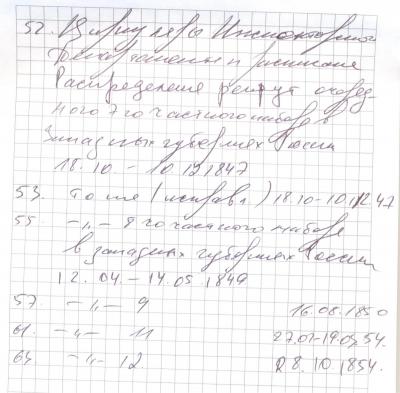 52. Циркуляры Инспекторского
Департамента и расписание
Распределения рекрут очеред-
ного 7го частного набора в
Западных губерниях России
18.10. - 10.12 1847
53. то же (исправл) 18.10-10.12.47
55 -„- 8 го частного набора
в западных губерниях России
12.04. - 14.05 1849
57. -„- 9 16.08.1850
61. -„- 11 27.01-19.03.54.
64. -„- 12. 28.10.1854.